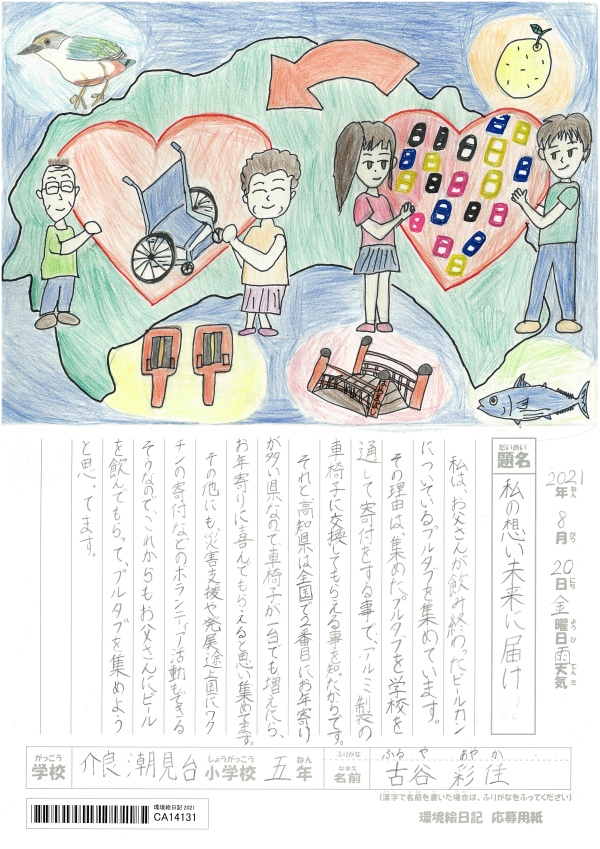 2021年ねん8月がつ20日にち金曜日ようび雨天気てんき
だいめい
題名
私の想い未来に届け
私は、お父さんが飲み終わったビールカン
についているプルタブを集めています。
その理由は集めたプルタブを学校を
通して寄付をする事で、アルミ製の
車椅子に交換してもらえる事を知ったからです。
それと高知県は全国で2番目にお年寄り
が多い県なので、車椅子が一台でも増えたら、
お年寄りに喜んでもらえると思い集めてます。
その他にも、災害支援や発展途上国にワク
チンの寄付などのボランティア活動もできる
そうなので、これからもお父さんにビール
を飲んでもらって、プルタブを集めよう
と思ってます。
がっこう しょうがっこう ねん
学校 介良潮見台 小学校 五年
ふりがな ふるや あやか
なまえ
名前 古谷 彩佳
(漢字で名前を書いた場合は、ふりがなをふってください)
環境絵日記 2021
CA14131
環境絵日記 応募用紙